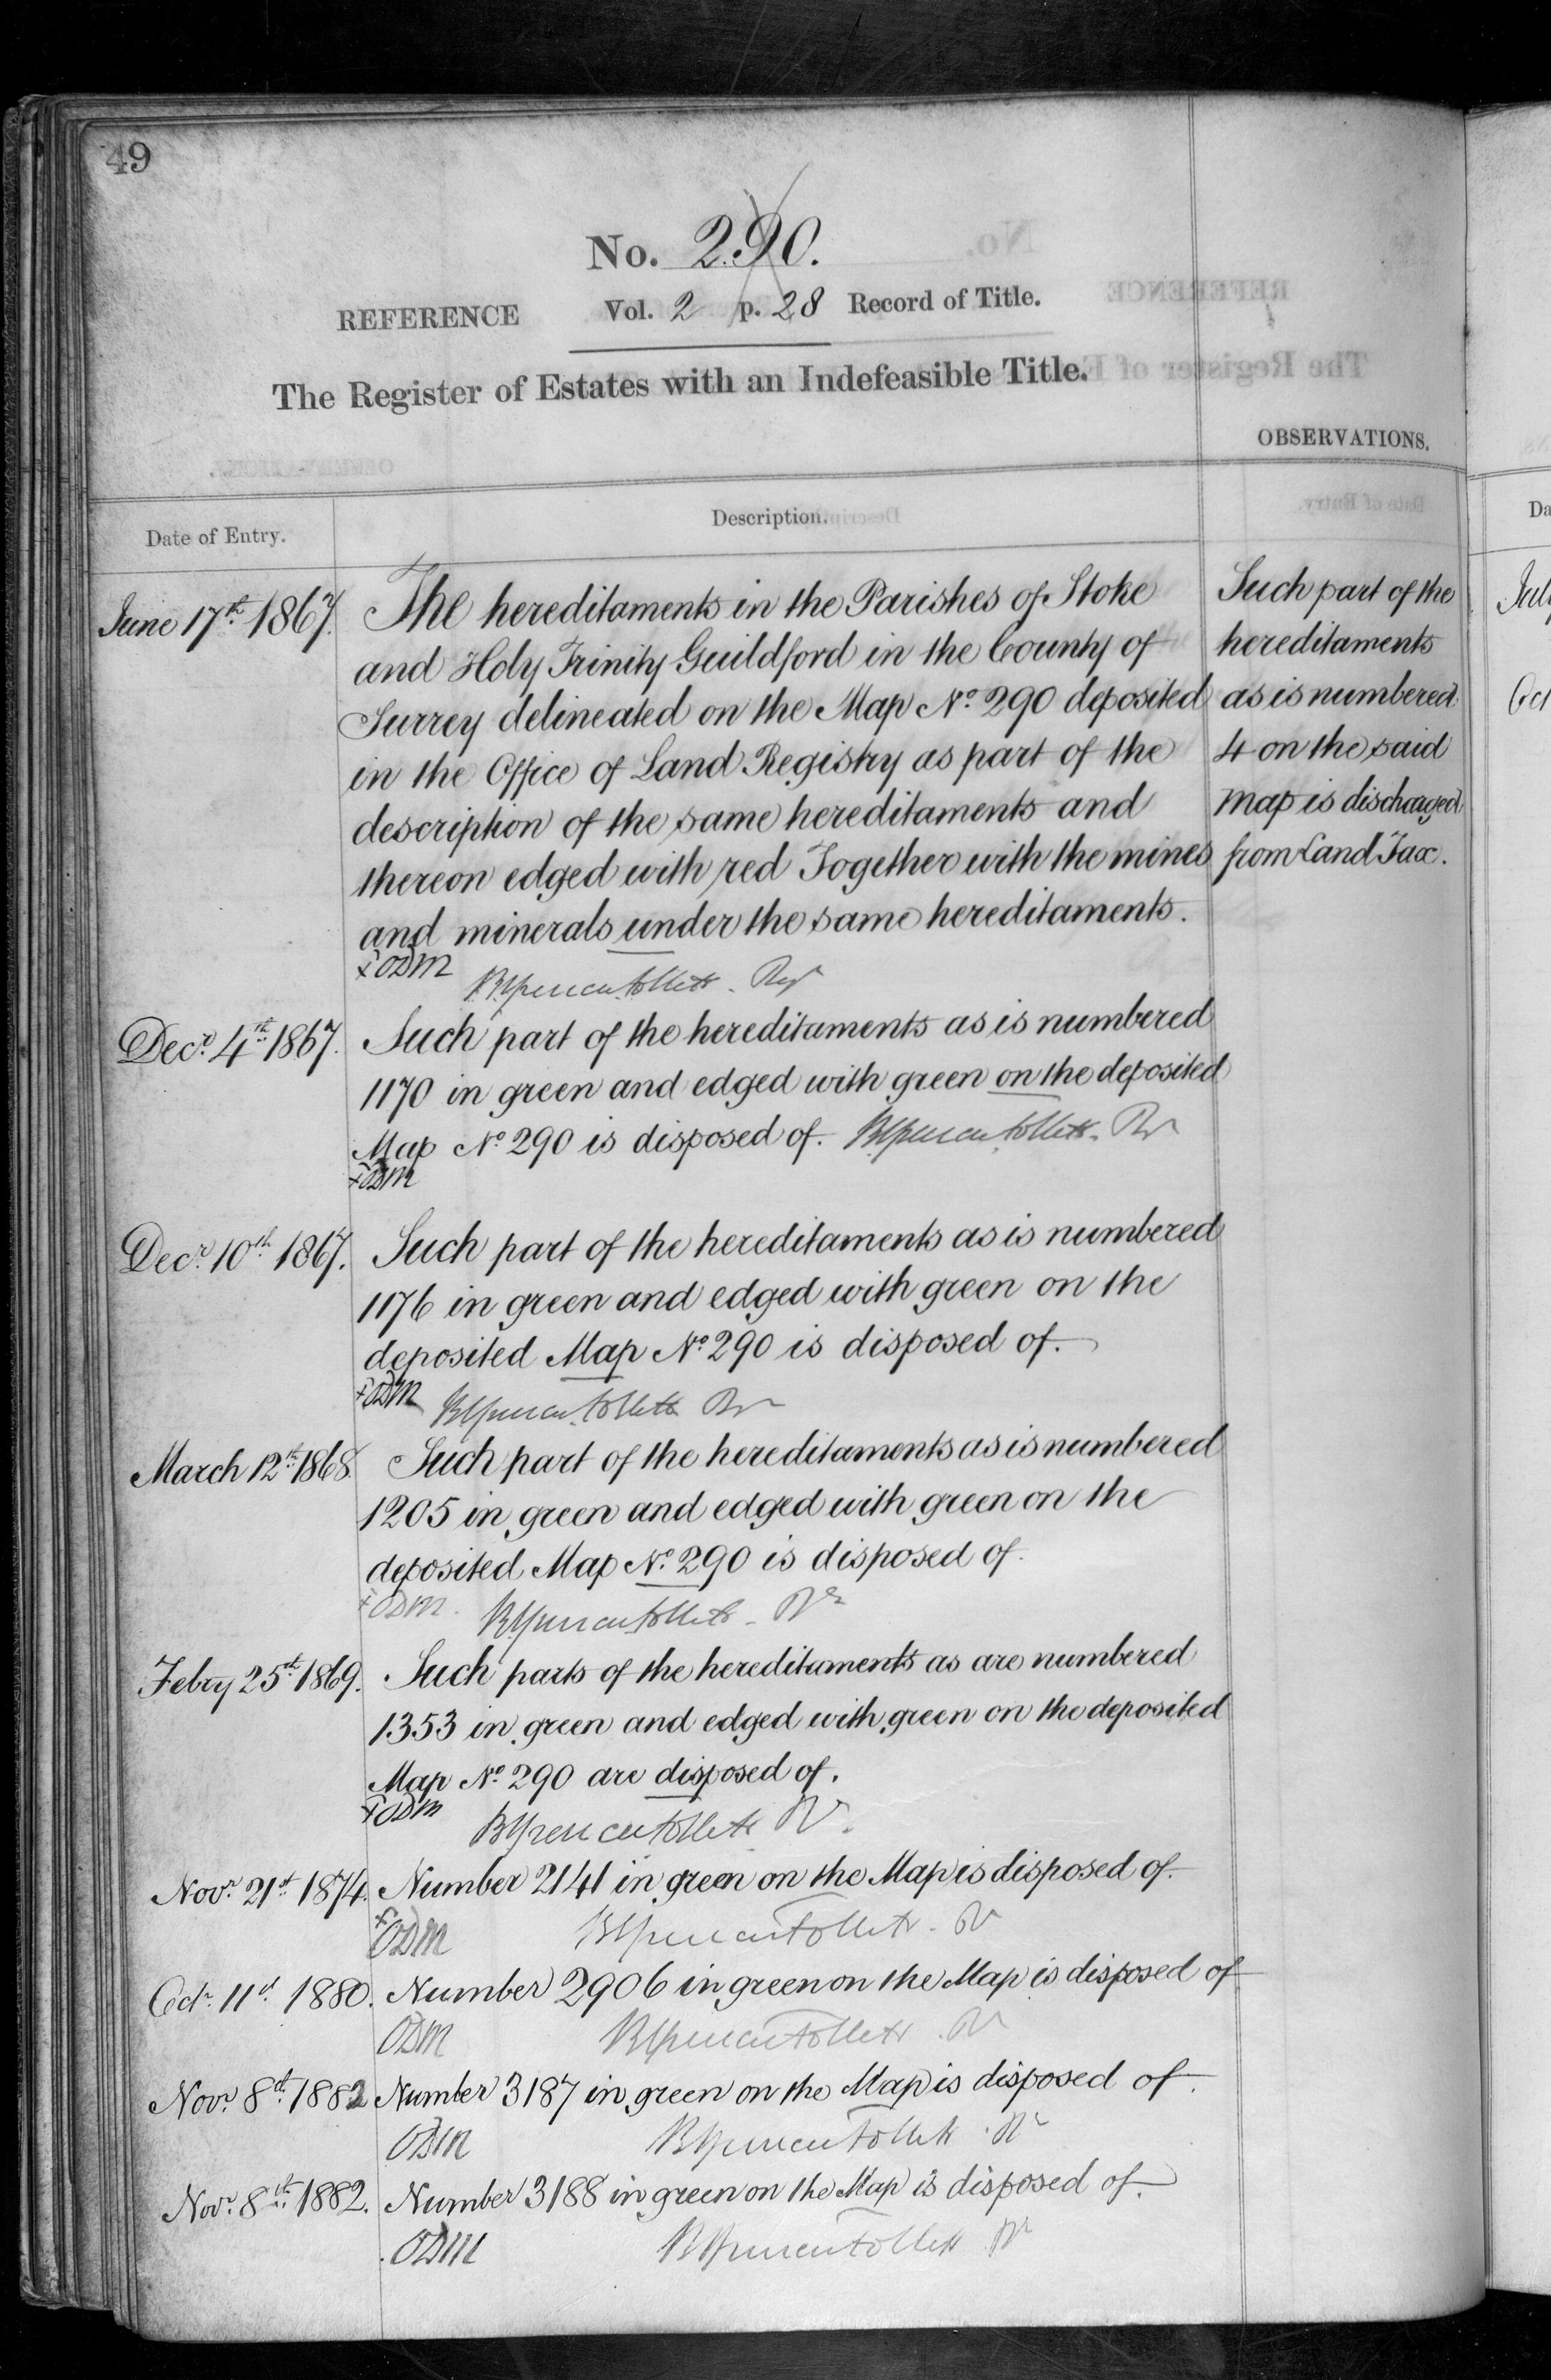 49
No. 290.
REFERENCE Vol. 2 p. 28 Record of Title.
The Register of Estates with an Indefeasible Title.
OBSERVATIONS.
Date of Entry.
Description.
June 17th 1867.
The hereditaments in the Parishes of Stoke
and Holy Trinity Guildford in the County of
Surrey delineated on the Map No. 290 deposited
in the Office of Land Registry as part of the
description of the same hereditaments and
thereon edged with red Together with the mines
and minerals under the same hereditaments.
Such part of the
hereditaments
as is numbered
4 on the said
map is discharged
from Land Tax.
ODM
Decr. 4th 1867.
Such part of the hereditaments as is numbered
1170 in green and edged with green on the deposited
Map No. 290 is disposed of.
ODM
Decr. 10th 1867.
Such part of the hereditaments as is numbered
1176 in green and edged with green on the
deposited Map No. 290 is disposed of.
ODM
March 12th 1868.
Such part of the hereditaments as is numbered
1205 in green and edged with green on the
deposited Map No. 290 is disposed of.
ODM.
Febry 25th 1869.
Such parts of the hereditaments as are numbered
1353 in green and edged with green on the deposited
Map No. 290 are disposed of.
ODM
Novr. 21st 1874.
Number 2141 in green on the Map is disposed of.
ODM
Octr. 11th 1880.
Number 2906 in green on the Map is disposed of
ODM
Novr. 8th 1882
Number 3187 in green on the Map is disposed of.
ODM
Novr. 8th 1882.
Number 3188 in green on the Map is disposed of.
ODM
Da
July
Oct